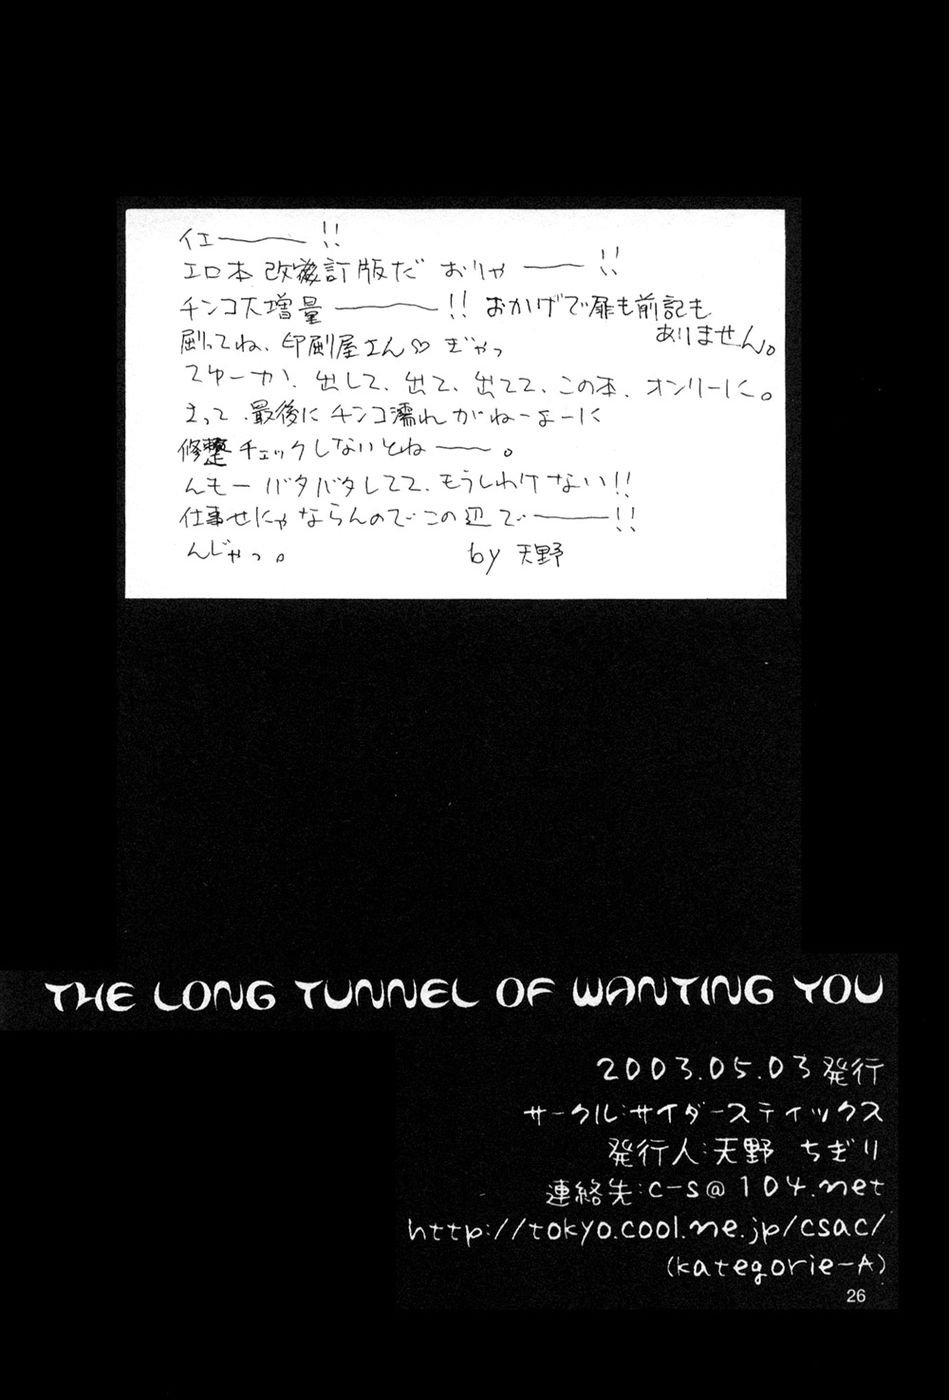 イエ――!!
エロ本改後訂版だ おりゃ――!!
チンコ大増量――!! おかげで扉も前記も
ありません。
刷ってね、印刷屋さん♡ ぎゃっ
出して、出て、出てて、この本、オンリーに。
最後にチンコ濡れがねーよーに
修整チェックしないとね――。
んもー バタバタしてて、もうしわけない!!
仕事せにゃならんのでこの辺で――!!
んじゃっ。 by 天野
THE LONG TUNNEL OF WANTING YOU
2003.05.03発行
サークル:サイダースティックス
発行人:天野 ちぎり
連絡先:c-s@104.net
http://tokyo.cool.ne.jp/csac/
(kategorie-A)
26